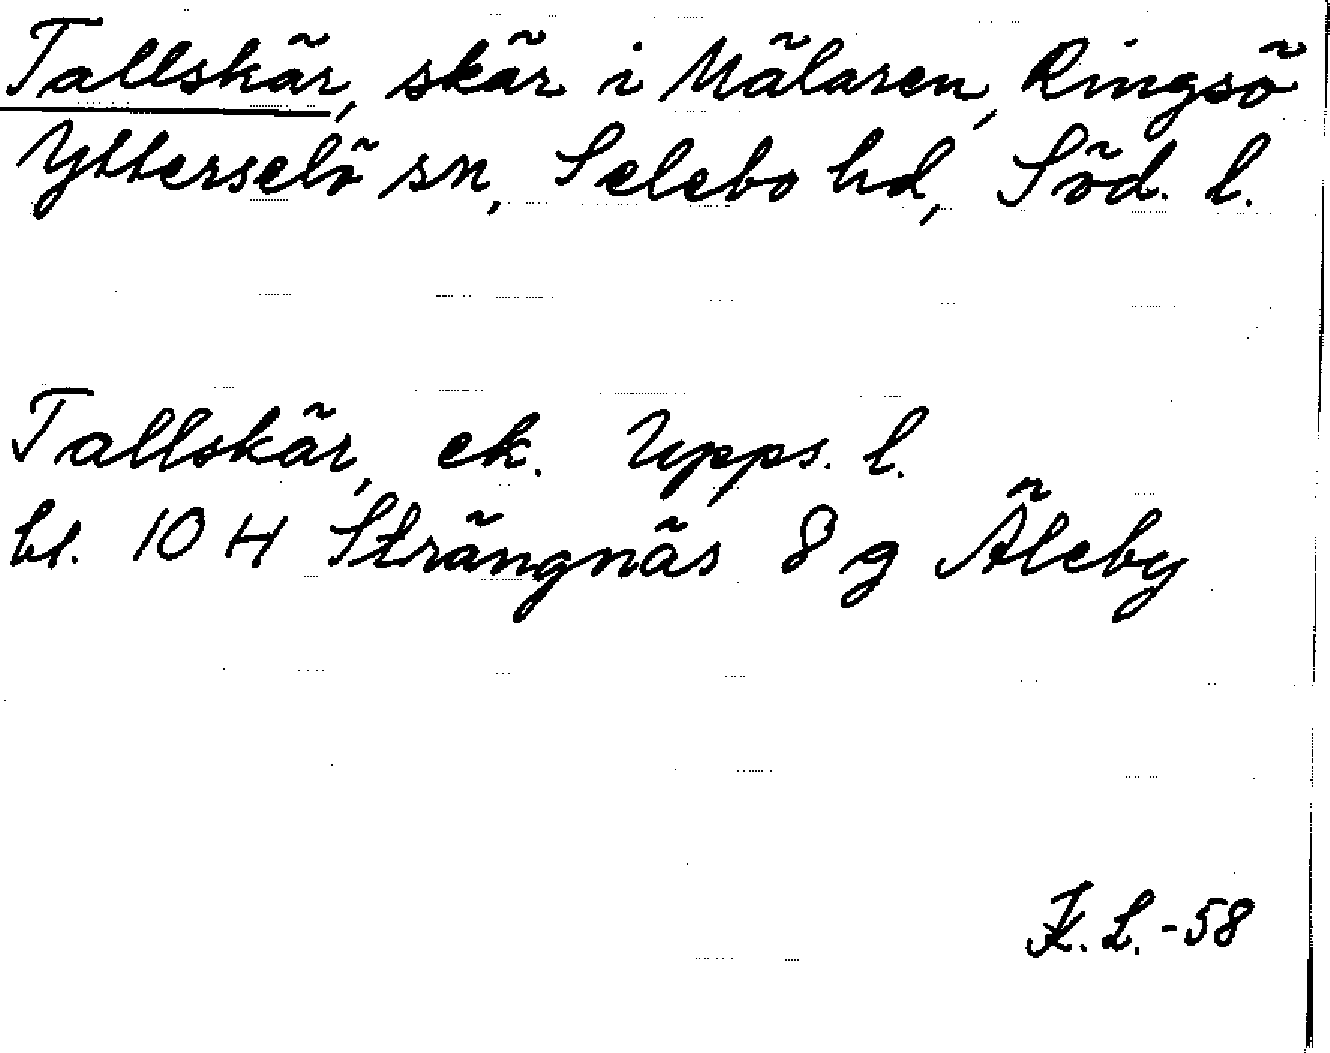 Tallskär, skär i Mälaren, Ringsö
Ytterselö sn, Selebo hd, Söd. l.
Tallskär, ek. Upps. l.
bl. 10 H Strängnäs 8 g Äleby
K. L. -58